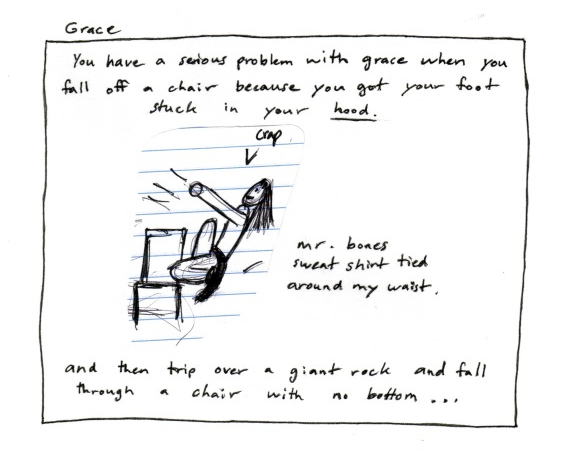 Grace
You have a serious problem with grace when you
fall off a chair because you got your foot
stuck in your hood.
crap
mr. bones
sweat shirt tied
around my waist.
and then trip over a giant rock and fall
through a chair with no bottom ...